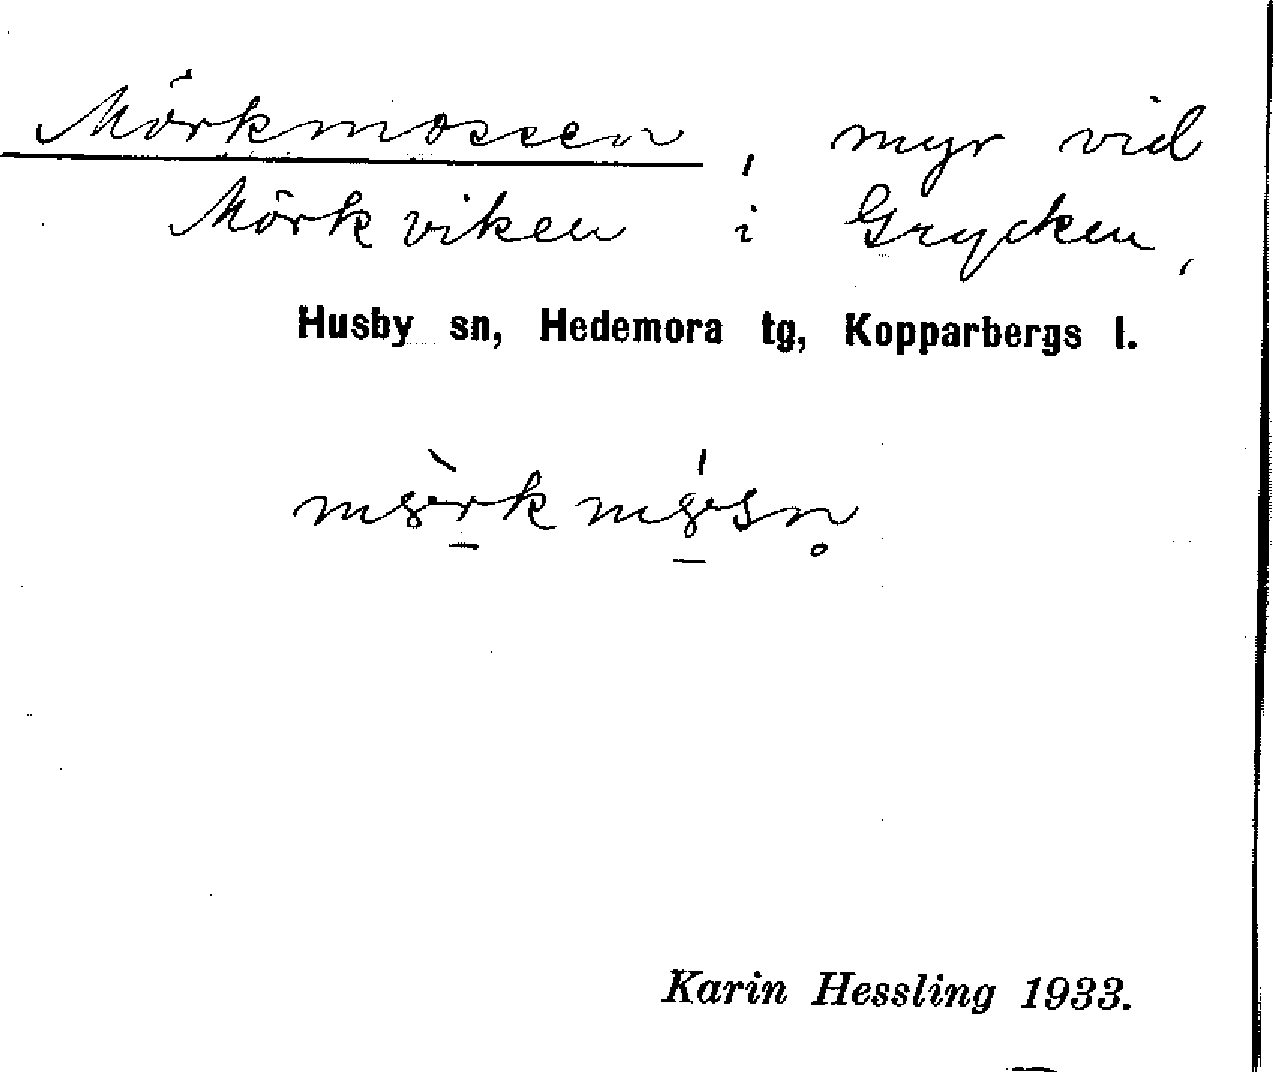 Mörkmossen, myr vid
Mörkviken i Grycken,
Husby sn, Hedemora tg, Kopparbergs l.
Karin Hessling 1933.